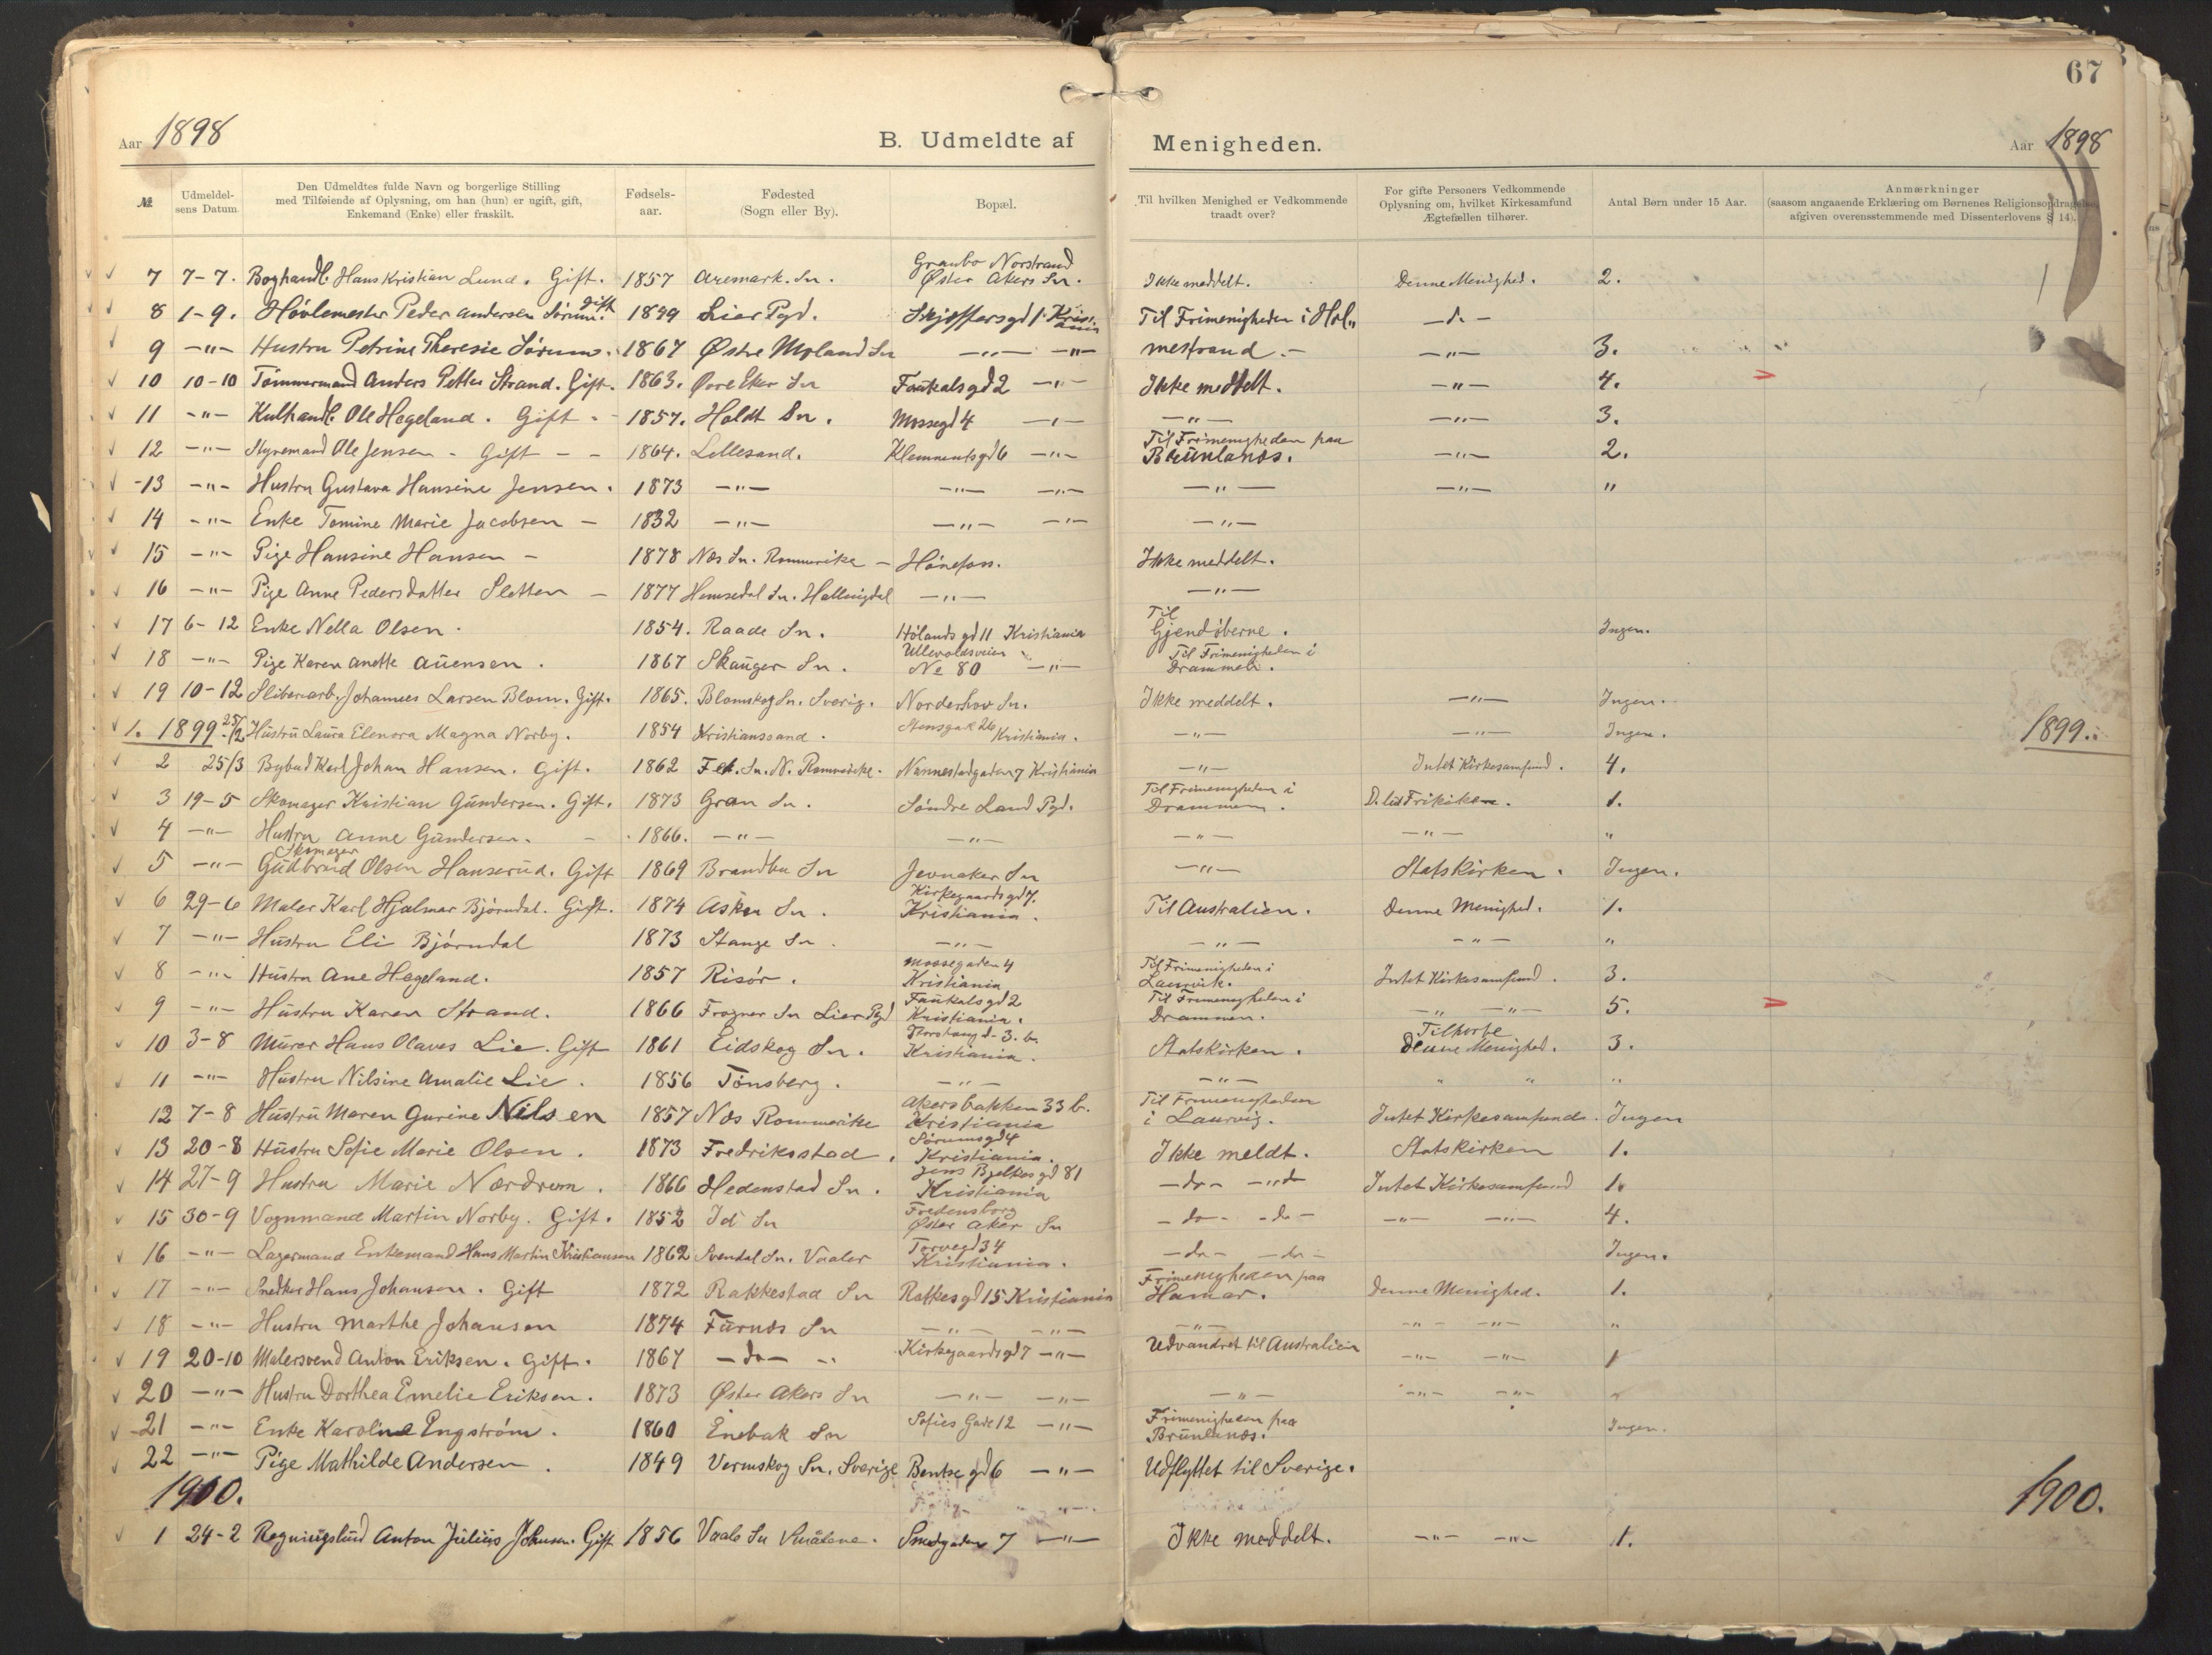 67
Aar 1898 B. Udmeldte af Menigheden. Aar 1898
№ Udmeldel-sens Datum. Den Udmeldtes fulde Navn og borgerlige Stilling med Tilføiende af Oplysning, om han (hun) er ugift, gift, Enkemand (Enke) eller fraskilt. Fødsels-aar. Fødested (Sogn eller By). Bopæl. Til hvilken Menighed er Vedkommende traadt over? For gifte Personers Vedkommende Oplysning om, hvilket Kirkesamfund Ægtefællen tilhører. Antal Børn under 15 Aar. Anmærkninger (saasom angaaende Erklæring om Børnenes Religionsopdragelse, afgiven overensstemmende med Dissenterlovens § 14).
7 7-7. Boghandl. Hans Kristian Lund. Gift. 1857 Aremark. Sn. Granbo Norstrand Øster Akers Sn. Ikke meddelt. Denne Menighed. 2.
8 1-9. Hövlemester Peder Andersen Sörum. Gift 1899 Lier Pgd. Kristiania Til Frimenigheden i Hol„ -d. -
9 -"- Hustru Petrine Theresie Sörum. 1867 Østre Moland Sn -"- -"- mestrand. -"- 3.
10 10-10 Tömmermand Anders Petter Strand. Gift. 1863. Øvre Eker Sn Faükalsgd 2 -"- Ikke meddelt. -"- 4.
11 -"- Kulhandl. Ole Hegeland. Gift - 1857. Holdt Sn. Mossegd 4 -"- -"- -"- 3.
12 -"- Styremand Ole Jensen - Gift - - 1864. Lillesand. Klemmentsgd 6 -"- Til Frimenigheden paa Brünlanæs. -"- 2.
13 -"- Hustru Gustava Hansine Jensen. 1873 -"- -"- -"- -"- -"- "
14 -"- Enke Tomine Marie Jacobsen - 1832 -"- -"- -"- -"-
15 -"- Pige Hansine Hansen - 1878 Næs Sn. Rommerike - Hönefoss. Ikke meddelt.
16 -"- Pige Anne Pedersdatter Sletten - 1877 Hemsedal Sn. Hallingdal -"- -"-
17 6-12 Enke Nella Olsen. 1854. Raade Sn. Hölandsgd 11 Kristiania Til Gjendöberne. Ingen.
18 -"- Pige Karen Anette Aüensen. 1867 Skaüger Sn. Ullevoldsveien № 80 -"- Til Frimenigheden i Drammen.
19 10-12 Sliberiarb. Johannes Larsen Blom. Gift. 1865. Blomskog Sn. Sverig. Norderhov Sn. Ikke meddelt. -"- Ingen.
1. 1899 25/2 Hüstrü Laüra Elenora Magna Norby. 1854 Kristianssand. Stensgad 26 Kristiania. -"- -"- Ingen. 1899.
2 25/3 Bybud Karl Johan Hansen. Gift. 1862 Fet. Sn. N. Romerike. Nannestadgaden 7 Kristiania -"- Intet Kirkesamfund. 4.
3 19-5 Skomager Kristian Gündersen. Gift. 1873 Gran Sn. Söndre Land Pgd. Til Frimenigheden i Drammen. D. lut Frikirken. 1.
4 -"- Hustru Anne Gündersen. - 1866. -"- -"- -"- -"- "
5 -"- Skomager Güdbrand Olsen Hanserüd. Gift 1869 Brandbu Sn Jevnaker Sn -"- Statskirken. Ingen.
6 29-6 Maler Karl Hjalmar Björndal. Gift. 1874 Asker Sn. Kirkegaardsgd 7. Kristiania. Til Australien. Denne Menighed. 1.
7 -"- Hüstru Eli Björndal 1873 Stange Sn. -"- -"- -"- "
8 -"- Hüstru Ane Hegeland. 1857 Risör. Mossegaden 4 Kristiania Til Frimenigheden i Laurvik. Intet Kirkesamfund. 3.
9 -"- Hüstru Karen Strand. 1866 Frogner Sn Lier Pgd Faükalsgd 2 Kristiania. Til Frimenigheden i Drammen. -"- -"- 5.
10 3-8 Mürer Hans Olaves Lie. Gift 1861 Eidskog Sn. 3. b. Kristiania. Statskirken. Tilhørte Denne Menighed. 3.
11 -"- Hüstru Nilsine Amalie Lie. 1856 Tönsberg. -"- -"- " " "
12 7-8 Hüstrü Maren Gurine Nilsen 1857 Næs Rommerike Akersbakken 33 b. Kristiania Til Frimenigheden i Laurvig. Intet Kirkesamfunds. Ingen
13 20-8 Hüstru Sofie Marie Olsen. 1873 Fredriksstad. Sörumsgd 4 Kristiania. Ikke meldt. Statskirken 1.
14 27-9 Hustru Marie Nordrum. 1866 Hedenstad Sn. Jens Bjelkes gd 81 Kristiania -do- -"do Intet Kirkesamfund 1.
15 30-9 Vognmand Martin Norby. Gift. 1852 Id Sn Fredensborg Øster Aker Sn -do- -do- -"- -"- 4.
16 -"- Lagermand Enkemand Hans Martin Kristiansen 1862 Svendal Sn. Vaaler Torvegd 34 Kristiania. -do- -do- Ingen.
17 -"- Snedker Hans Johansen. Gift 1872 Rakkestad Sn Ratkesgd 15 Kristiania Frimenigheden paa Hamar. Denne Menighed. 1.
18 -"- Hustru Marthe Johansen 1874 Fürnæs Sn -"- -"- -"- -"- -"- "
19 20-10 Malersvend Anton Eriksen. Gift. 1867 -do- -. Kirkegaardsgd 7 -"- Udvandret til Australien -"- -"- 1
20 -"- Hustru Dorthea Emelie Eriksen. 1873 Øster Akers Sn -"- -"- -"- -"- -"- "
21 -"- Enke Karoline Engström. 1860 Enebak Sn Sofies Gade 12 -"- Frimenigheden paa Brünlanæs. Ingen.
22 -"- Pige Mathilde Andersen. 1849 Vermskog Sn. Sverige Bentsegd 6 -"- Udflyttet til Sverige.
1900. 1900.
1 24-2 Anton Jülius Johnsen. Gift 1856 Vaale Sn Smålene. Smedgaden 7 -"- Ikke meddelt. -"- -"- 1.